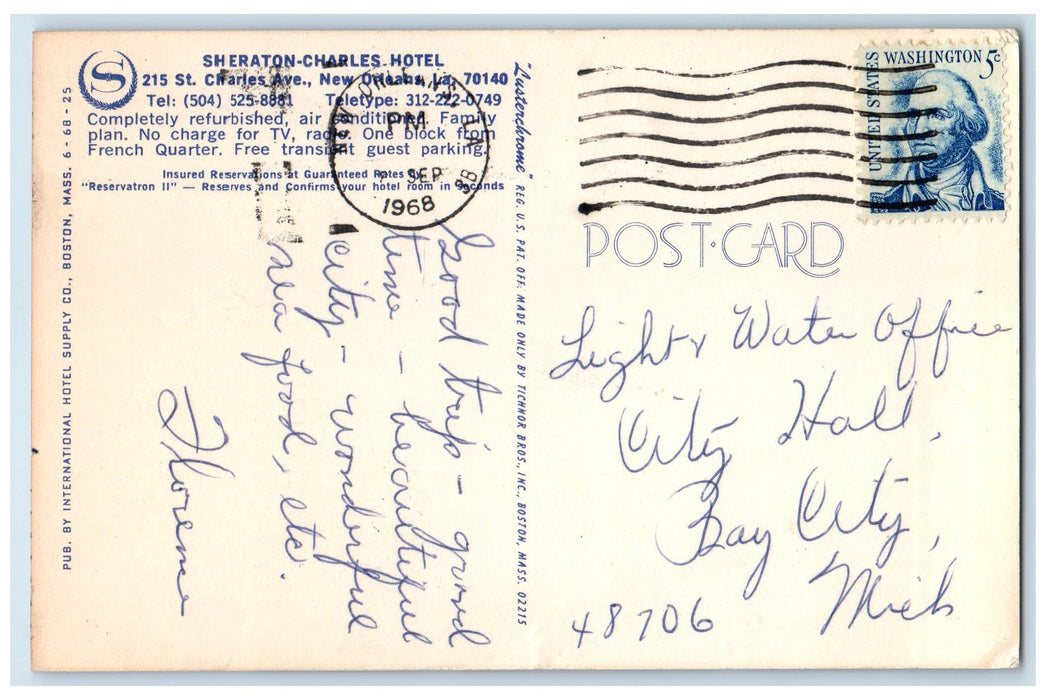 SHERATON-CHARLES HOTEL
215 St. Charles Ave., New Orleans, La. 70140
Tel: (504) 525-8881 Teletype: 312-222-0749
Completely refurbished, air conditioned. Family
plan. No charge for TV, radio. One block from
French Quarter. Free transient guest parking.
Insured Reservations at Guaranteed Rates by
"Reservatron II" — Reserves and Confirms your hotel room in seconds
S
PUB. BY INTERNATIONAL HOTEL SUPPLY CO., BOSTON, MASS. 6 - 68 - 25
NEW ORLEANS LA
PM
SEP
1968
Good trip - good
time - beautiful
city - wonderful
sea food, etc.
Florence
"Lusterchrome" REG. U.S. PAT. OFF. MADE ONLY BY TICHNOR BROS., INC., BOSTON, MASS. 02215
UNITED STATES
WASHINGTON 5c
POST·CARD
Light & Water Office
City Hall,
Bay City,
Mich
48706